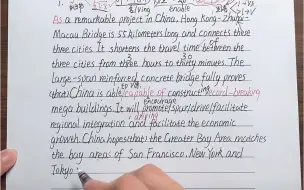 living enable
As a remarkable project in China, Hong Kong-Zhuhai-
Macau Bridge is 55 kilometers long and connects these
three cities. It shortens the travel time between the
three cities from three hours to thirty minutes. The
large-span reinforced concrete bridge fully proves
that China is able capable of constructing record-breaking
encourage
mega buildings. It will promote/spur/drive/facilitate
regional integration and facilitate the economic
growth. China hopes that the Greater Bay Area matches
the bay areas of San Francisco, New York and
Tokyo.